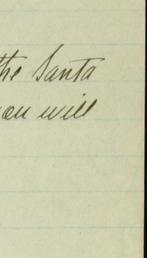 the Santa
you will